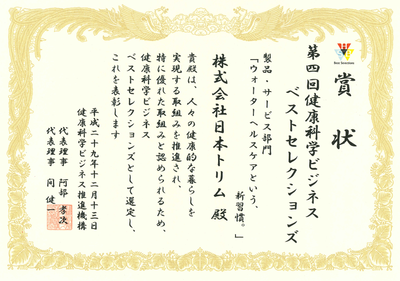 賞状
第四回健康科学ビジネス
ベストセレクションズ
製品・サービス部門
「ウォーターヘルスケアという、
新習慣。」
株式会社日本トリム 殿
貴殿は、人々の健康的な暮らしを
実現する取組みを推進され、
特に優れた取組みと認められるため、
健康科学ビジネス
ベストセレクションズとして選定し、
これを表彰します
平成二十九年十二月十三日
健康科学ビジネス推進機構
代表理事 阿部 孝次
代表理事 間 健一